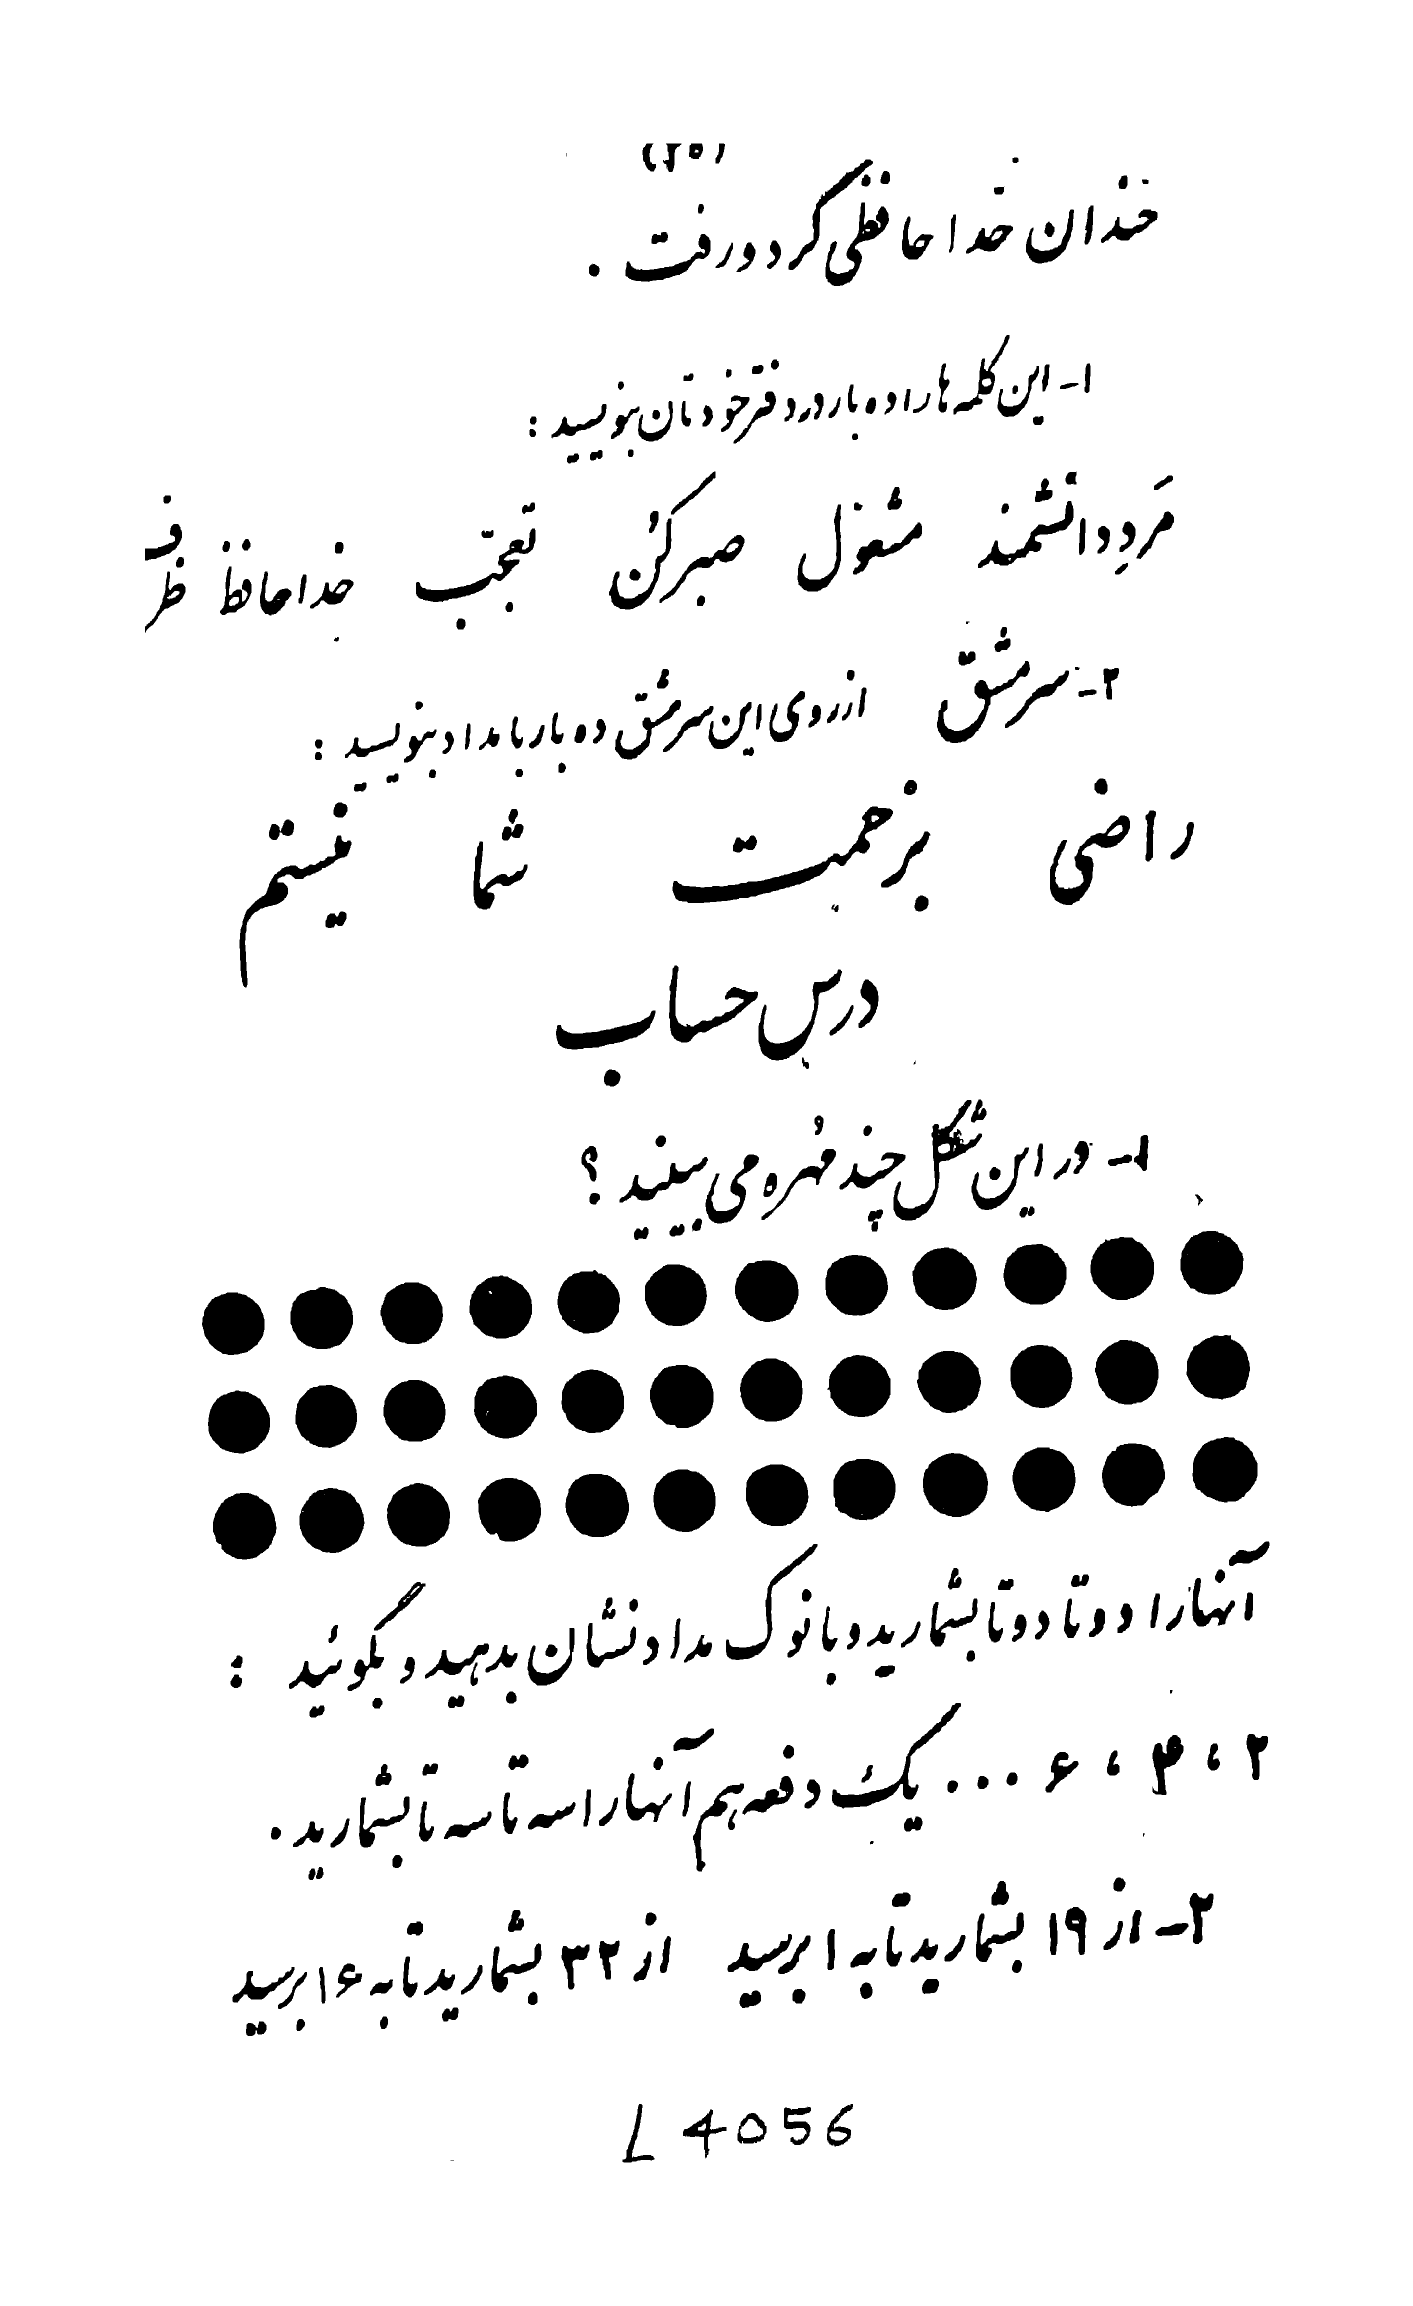 خندان خداحافظی کرد و رفت .
۱- این کلمه ها را ده بار در دفتر خودتان بنویسید :
مَردِ دانشمند مشغول صبر کُن تعجّب خداحافظ ظرف
۲- سرمشق از روی این سرمشق ده بار با مداد بنویسید :
راضی بزحمت شما نیستم
درس حساب
۱- در این شکل چند مُهره می بینید ؟
آنها را دو تا دو تا بشمارید و با نوک مداد نشان بدهید و بگوئید :
۲ ، ۴ ، ۶ ... یک دفعه هم آنها را سه تا سه تا بشمارید .
۲- از ۱۹ بشمارید تا به ۱ برسید از ۳۲ بشمارید تا به ۱۶ برسید
L 4056